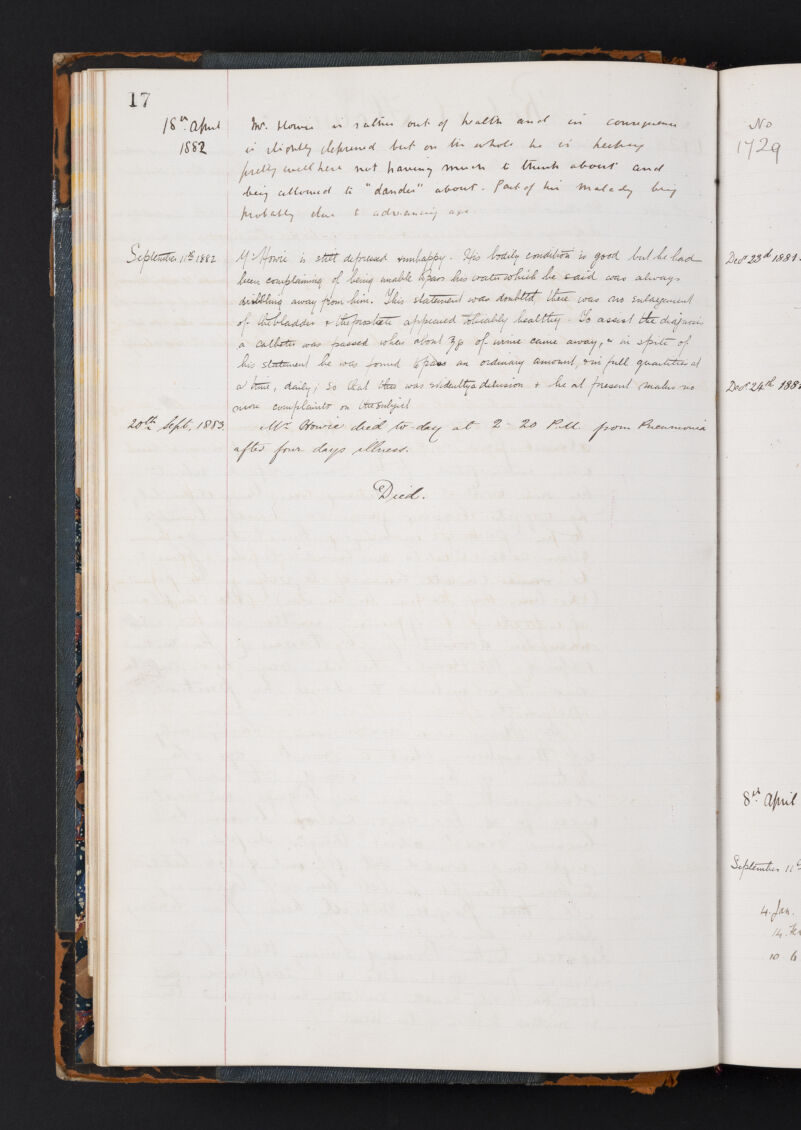 17
18th April
1882
Mr. Howie is rather out of health and in consequence
is slightly depressed but on the whole he is keeping
pretty well here not having much to think about and
being allowed to "dander" about. Part of his malady being
probably due to advancing age.
September 11th 1882
Mr Howie is still depressed & unhappy. His bodily condition is good but he had
been complaining of being unable to pass his water which he said was always
dribbling away from him. This statement was doubted, there was no enlargement
of the bladder & the prostate appeared tolerably healthy. To assist the diagnosis
a catheter was passed when about ʒ8 of urine came away, & in spite of
his statement he was found to pass an ordinary amount, & in full quantities at
a time, daily; so that this was evidently a delusion & he at present makes no
more complaints on the subject
20th Sept. 1883.
Mr. Howie died to-day at 2-20 P.M. from Pneumonia
after four days illness.
Died.
No
1729
Decr 23d 1881.
Decr 24th 188
8th April
September 11
4. Jan.
14.
10